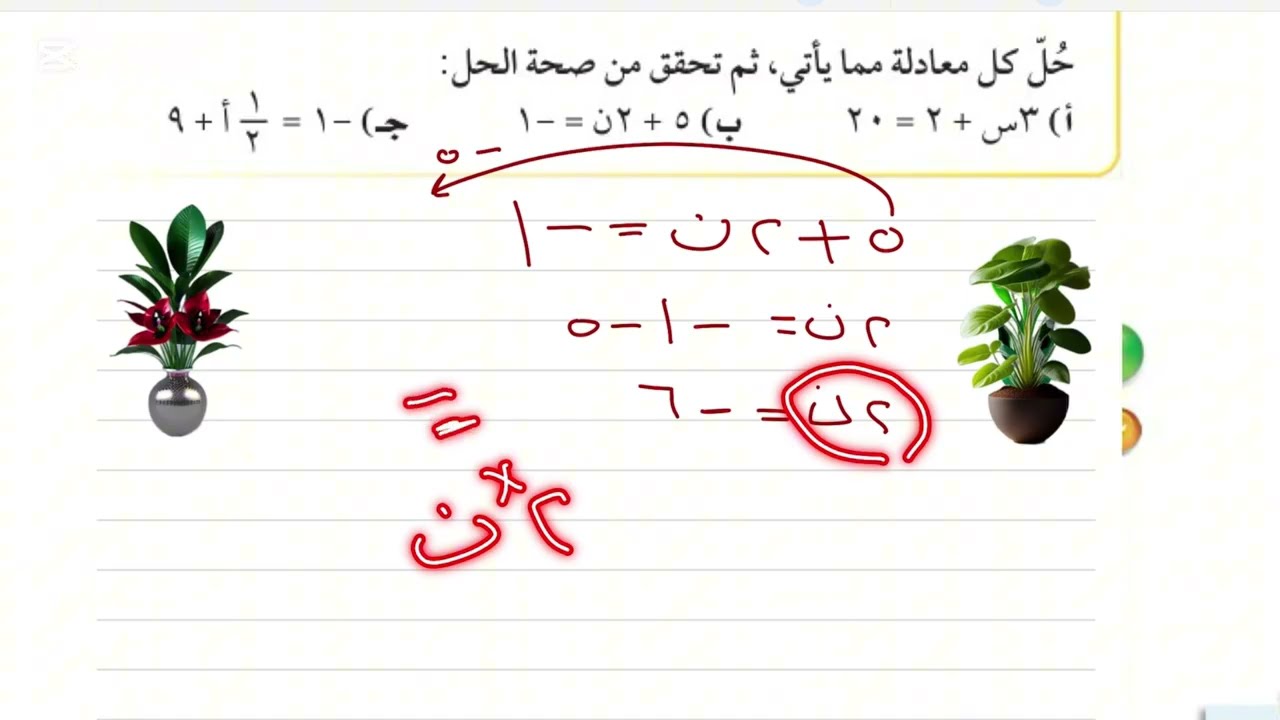 حُلّ كل معادلة مما يأتي، ثم تحقق من صحة الحل:
أ) ٣س + ٢ = ٢٠ ب) ٥ + ٢ن = −١ جـ) −١ = ١/٢ أ + ٩
− ٥
٥ + ٢ن = − ١
٢ن = − ١ − ٥
٢ن = − ٦
=
٢ × ن